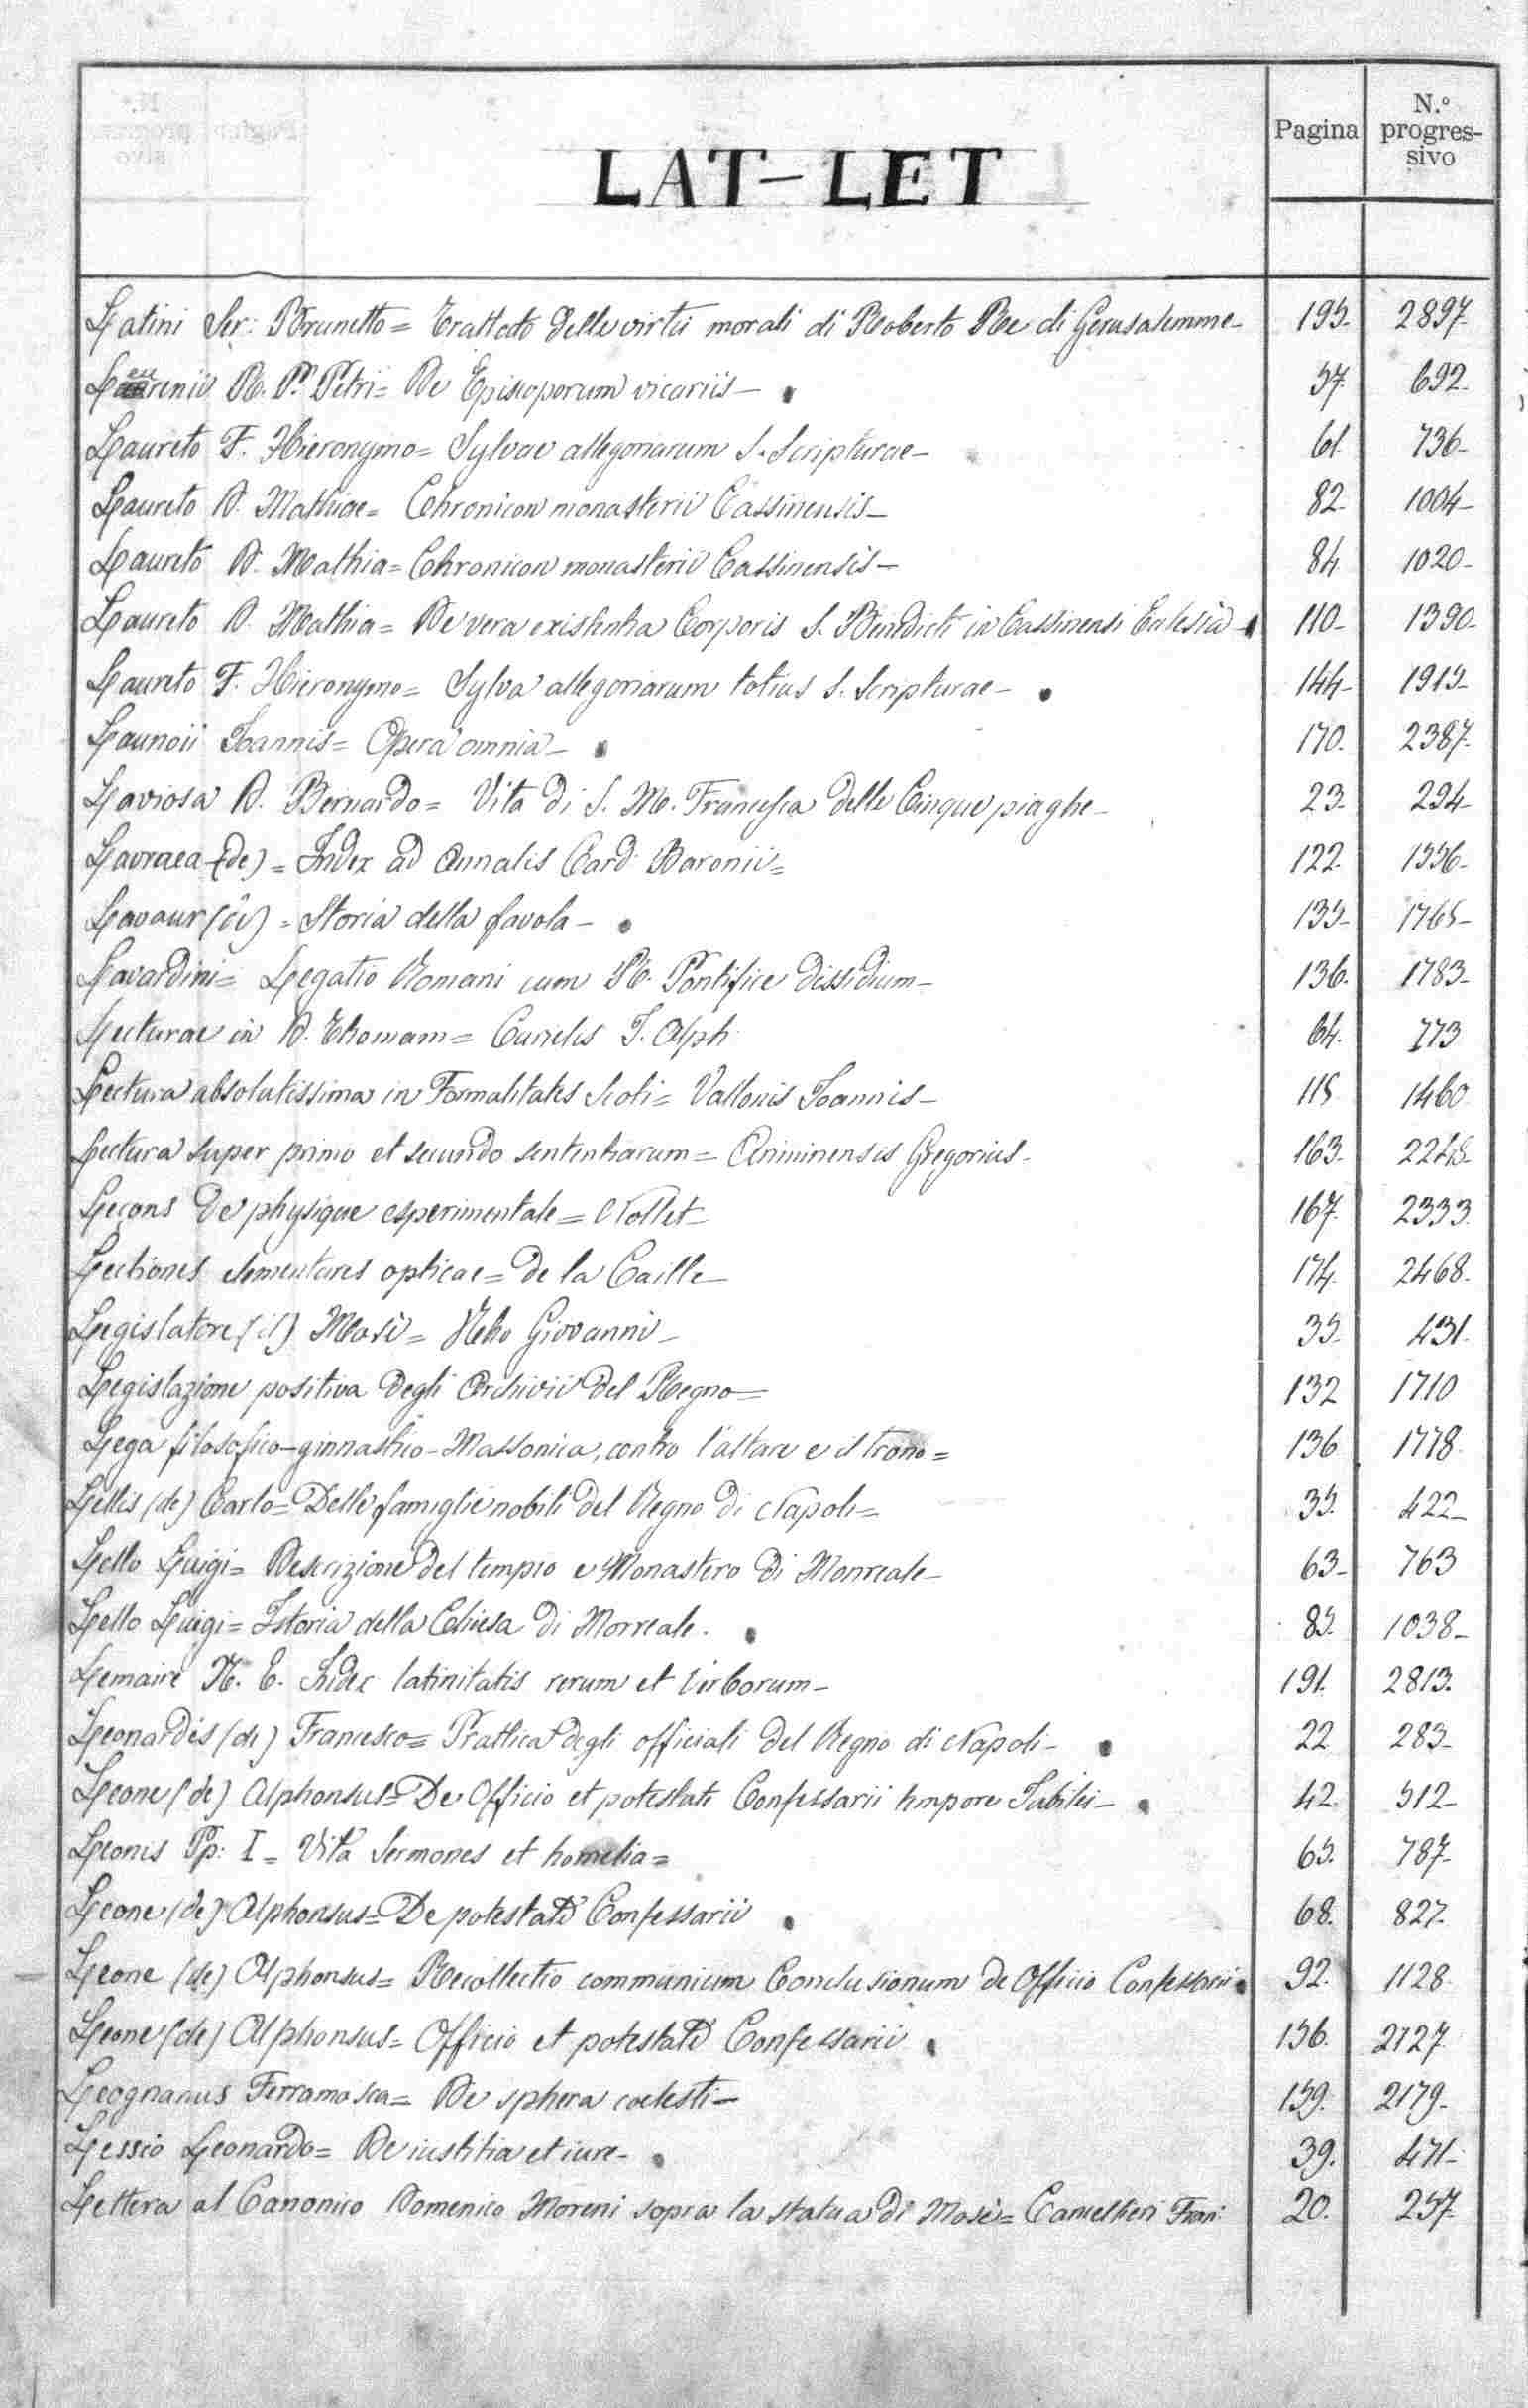 Pagina
N.º progres-
sivo
LAT-LET
Latini Ser: Brunetto = Trattato delle virtù morali di Roberto Re di Gerusalemme - 195. 2897.
Leurenii R. P. Petri = De Episcoporum vicariis - 57. 692.
Laureto F. Hieronymo = Sylvae allegoriarum S. Scripturae - 61. 736-
Laureto D. Mathiae = Chronicon monasterii Cassinensis - 82. 1004-
Laureto D. Mathia = Chronicon monasterii Cassinensis - 84. 1020-
Laureto D. Mathia = De vera existentia Corporis S. Benedicti in Cassinensi Eclesia - 110- 1390-
Laureto F. Hieronymo = Sylva allegoriarum totius S. Scripturae - 144- 1915-
Launoii Ioannis = Opera omnia - 170. 2387.
Laviosa D. Bernardo = Vita di S. M. Francesca delle Cinque piaghe - 23- 294-
Lavraea (de) = Index ad Annalis Card. Baronii = 122. 1556-
Lavaur (di) = Storia della favola - 135- 1765-
Lavardini = Legatio Romani cum R. Pontifice dissidium - 136. 1783-
Lecturae in D. Thomam = Curielis J. Alph 64. 773
Lectura absolutissima in Formalitates Scoti = Vallonis Joannis - 115 1460
Lectura super primo et secundo sententiarum = Ariminensis Gregorius - 163-
Leçons de physique esperimentale = Nollet - 167. 2333
Lectiones elementares opticae = de la Caille - 174. 2468.
Legislatore (il) Mosè = Giovanni - 35- 431.
Legislazione positiva degli Archivii del Regno = 132 1710
Lega filosofico-ginnastico-Massonica, contro l'altare e il trono = 136 1778.
Lellis (de) Carlo = Delle famiglie nobili del Regno di Napoli = 35. 422-
Lello Luigi = Descrizione del tempio e Monastero di Monreale - 63- 763
Lello Luigi = Istoria della Chiesa di Morreale. 85. 1038-
Lemaire N. E. Index latinitatis rerum et verborum - 191. 2813.
Leonardis (de) Francesco = Prattica degli officiali del Regno di Napoli - 22 283-
Leone (de) Alphonsus = De Officio et potestate Confessarii tempore Jubilei - 42. 512-
Leonis Pp: I = Vita Sermones et homelia = 65. 787-
Leone (de) Alphonsus = De potestate Confessarii 68. 827.
Leone (de) Alphonsus = Recollectio communium Conclusionum de Officio Confessarii 92. 1128.
Leone (de) Alphonsus = Officio et potestate Confessarii 156. 2127.
Leognanus Ferramosca = De sphera coelesti - 159. 2179-
Lessio Leonardo = De iustitia et iure - 39. 471-
Lettera al Canonico Domenico Moreni sopra la statua di Mosè = Cancellieri Fran: 20. 257.